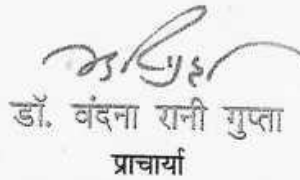 डॉ. वंदना रानी गुप्ता
प्राचार्या